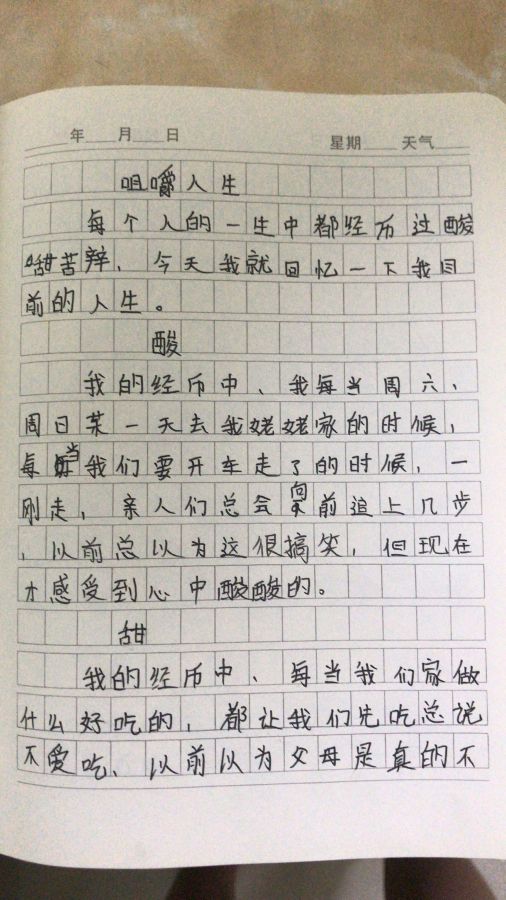 年 月 日 星期 天气
咀嚼人生
每个人的一生中都经历过酸
甜苦辣、今天我就回忆一下我目
前的人生。
酸
我的经历中、我每当周六、
周日某一天去我姥姥家的时候，
每当我们要开车走了的时候，一
刚走，亲人们总会向前追上几步
，以前总以为这很搞笑，但现在
才感受到心中酸酸的。
甜
我的经历中、每当我们家做
什么好吃的，都让我们先吃总说
不爱吃、以前以为父母是真的不